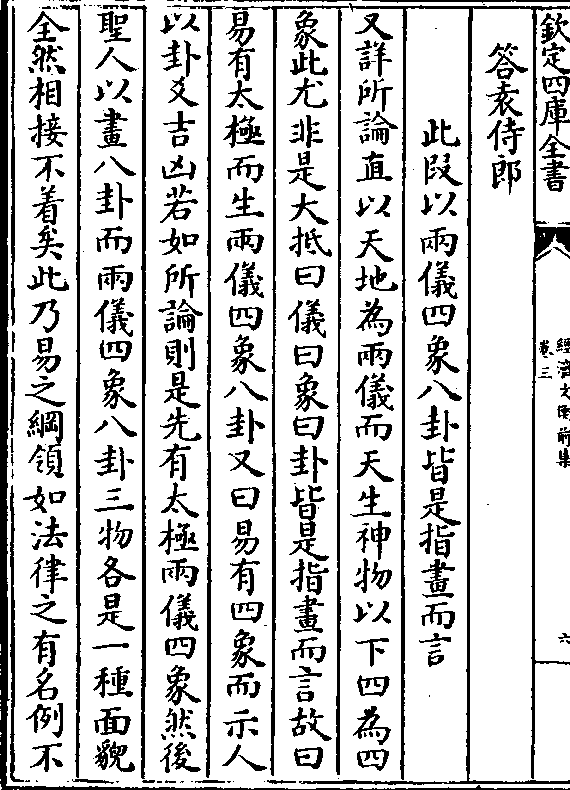 欽定四庫全書
經濟文衡前集
卷三
六
答袁侍郎
此段以兩儀四象八卦皆是指畫而言
又詳所論直以天地為兩儀而天生神物以下四為四
象此尤非是大抵曰儀曰象曰卦皆是指畫而言故曰
易有太極而生兩儀四象八卦又曰易有四象而示人
以卦爻吉凶若如所論則是先有太極兩儀四象然後
聖人以畫八卦而兩儀四象八卦三物各是一種面貌
全然相接不着矣此乃易之綱領如法律之有名例不